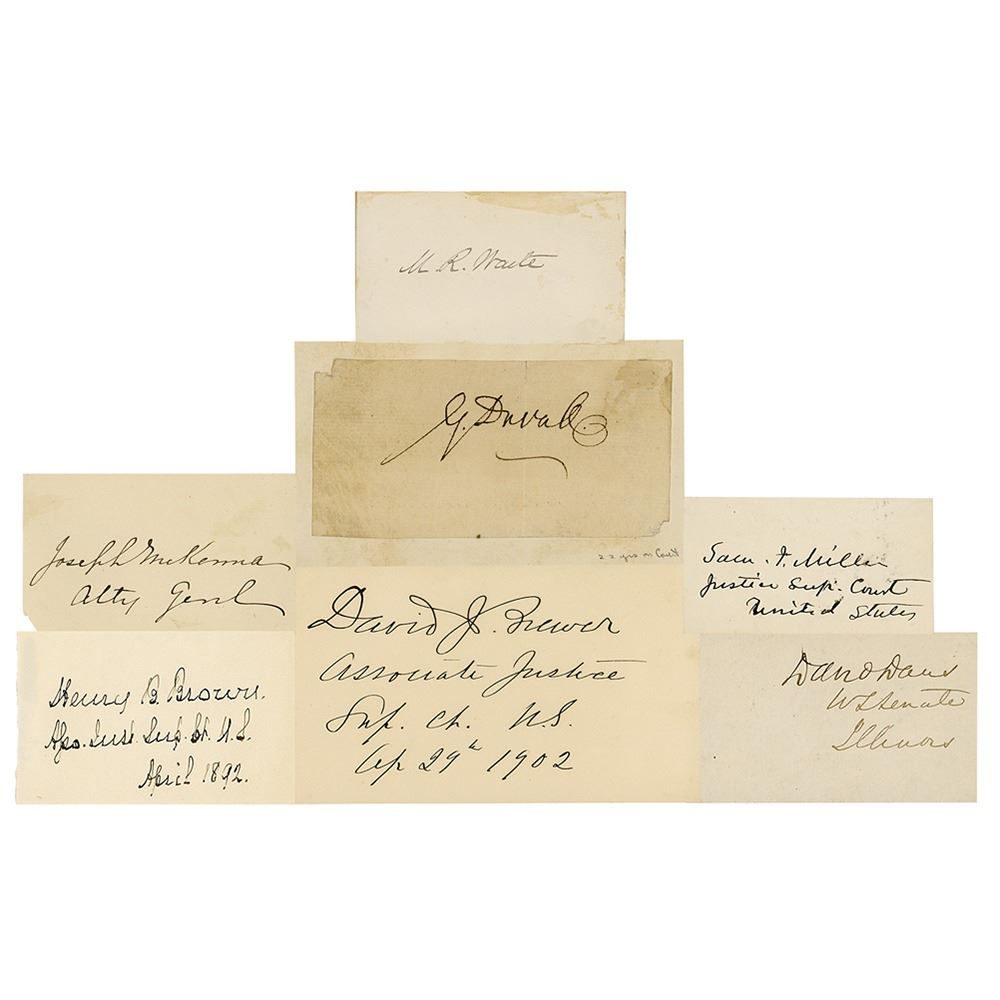 M. R. Waite
G. Duvall.
22 yrs on Court
Joseph McKenna
Atty Genl
Sam. F. Miller
Justice Sup. Court
United States
David J. Brewer
Associate Justice
Sup. Ct. U.S.
Ap 29th 1902
Henry B. Brown.
Asso. Just. Sup. Ct. U.S.
April 1892.
David Davis
US Senate
Illinois